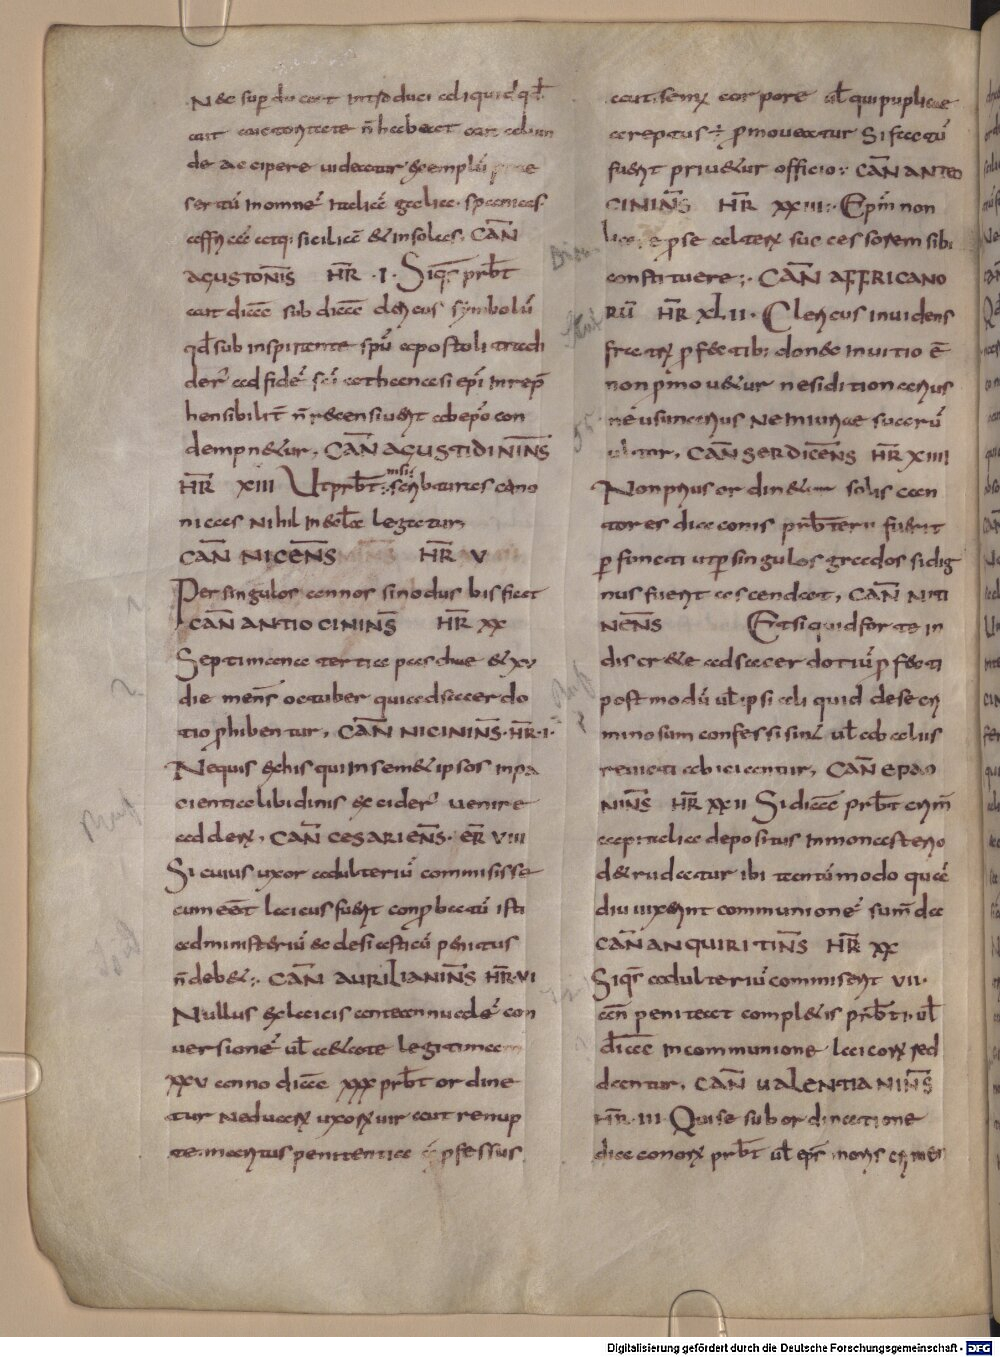 Nec sup ducat introduci aliquid qđ
aut auctoritate ñ habeat aut aliun
de accipere uideatur exemplū prae
sertū in omnē italiē gallie. spanies.
affricē atq: siciliē & insoles. CAN̄
AGUSTONĪS HR̄ .I. Siqs̄ prb̄t
aut diac̄ sub diac̄ clericus symbolū
qđ sub inspirante spū apostoli tradi
der̄ ad fidē sc̄i athanasi epī inrep̄
hensibilit̄ ñ recensiuerit ab ep̄o con
dempnetur, CAN̄ AGUSTIDININ̄S
HR̄ XIII Ut prb̄t: nisi scribturas cano
nicas nihil in ecl̄a legatur,
CAN̄ NICEN̄S HR̄ V
Per singulos annos sinodus bis fiat
CAN̄ ANTIOCININ̄S HR̄ XX
Septimana tertia paschae & xv
die mens̄ octuber quia ad sacerdo
tio p̄hibentur, CAN̄ NICININ̄S. HR̄. I.
Nequis ex his qui insem&ipsos inpa
cientia libidinis exciderī uenire
ad cler̄, CAN̄ CESARIEN̄S. ER̄ VIII
Si cuius uxor adulteriū commisisse
cum eēt laicus fuerit conp̄batū isti
administeriū ecclesiasticū penitus
ñ debet:. CAN̄ AURILIANIN̄S HR̄. VI
Nullus ex laicis ante annualē con
uersionē ul̄ aetate legitima
XXV anno diac̄ XXX prb̄t ordine
tur Ne ducatr̄ uxor̄ uir aut renup
te. maritus penitentiae ē p̄fessus
aut. semi corpore ul̄ qui puplicae
areptus ÷ p̄moueatur Si factū
fuerit priu&ur officio:. CAN̄ ANTEO
CININ̄S HR̄ XXIII:. Epīm non
licere p se alter̄ successorem sibi
constituere:. CAN̄ AFFRICANO
RŪ HR̄ XLII. Clericus inuidens
fratr̄ p̄fectib: donec inuitio ē
non p̄mou&ur ne siditionarius
ne usurarius Ne iniuriae suarū
ultor, CAN̄ SERDICEN̄S HR̄ XIIII
Non prius ordinetur solis can
tores diaconis prb̄teri fuerit
p functi ut p singulos grados si dig
nus fuerit ascendat, CAN̄ NITI
NEN̄S Et si quid forte in
discr&e ad sacerdotiū p̄fecti
post modū ul̄ ipsi aliquid de se cri
minosum confessi sint ul̄ ab aliis
reuicti abiciantur, CAN̄ EPAO
NIN̄S HR̄ XXII Si diac̄ prb̄t crim̄
capitalia depositus in monasterio
d&rudatur ibi tantūmodo quaē
diu uixerint communionē sum̄da
CAN̄ ANQUIRITIN̄S HR̄ XX
Siqs̄ adulteriū commiserit VII.
an̄ peniteat completis prb̄t: ul̄
diac̄ in communione laicor̄ red
dantur, CAN̄ UALENTIANIN̄S
HR̄. III. Qui se sub ordinatione
diaconor̄ prb̄t ul̄ epī moris crimer
Digitalisierung gefördert durch die Deutsche Forschungsgemeinschaft - DFG